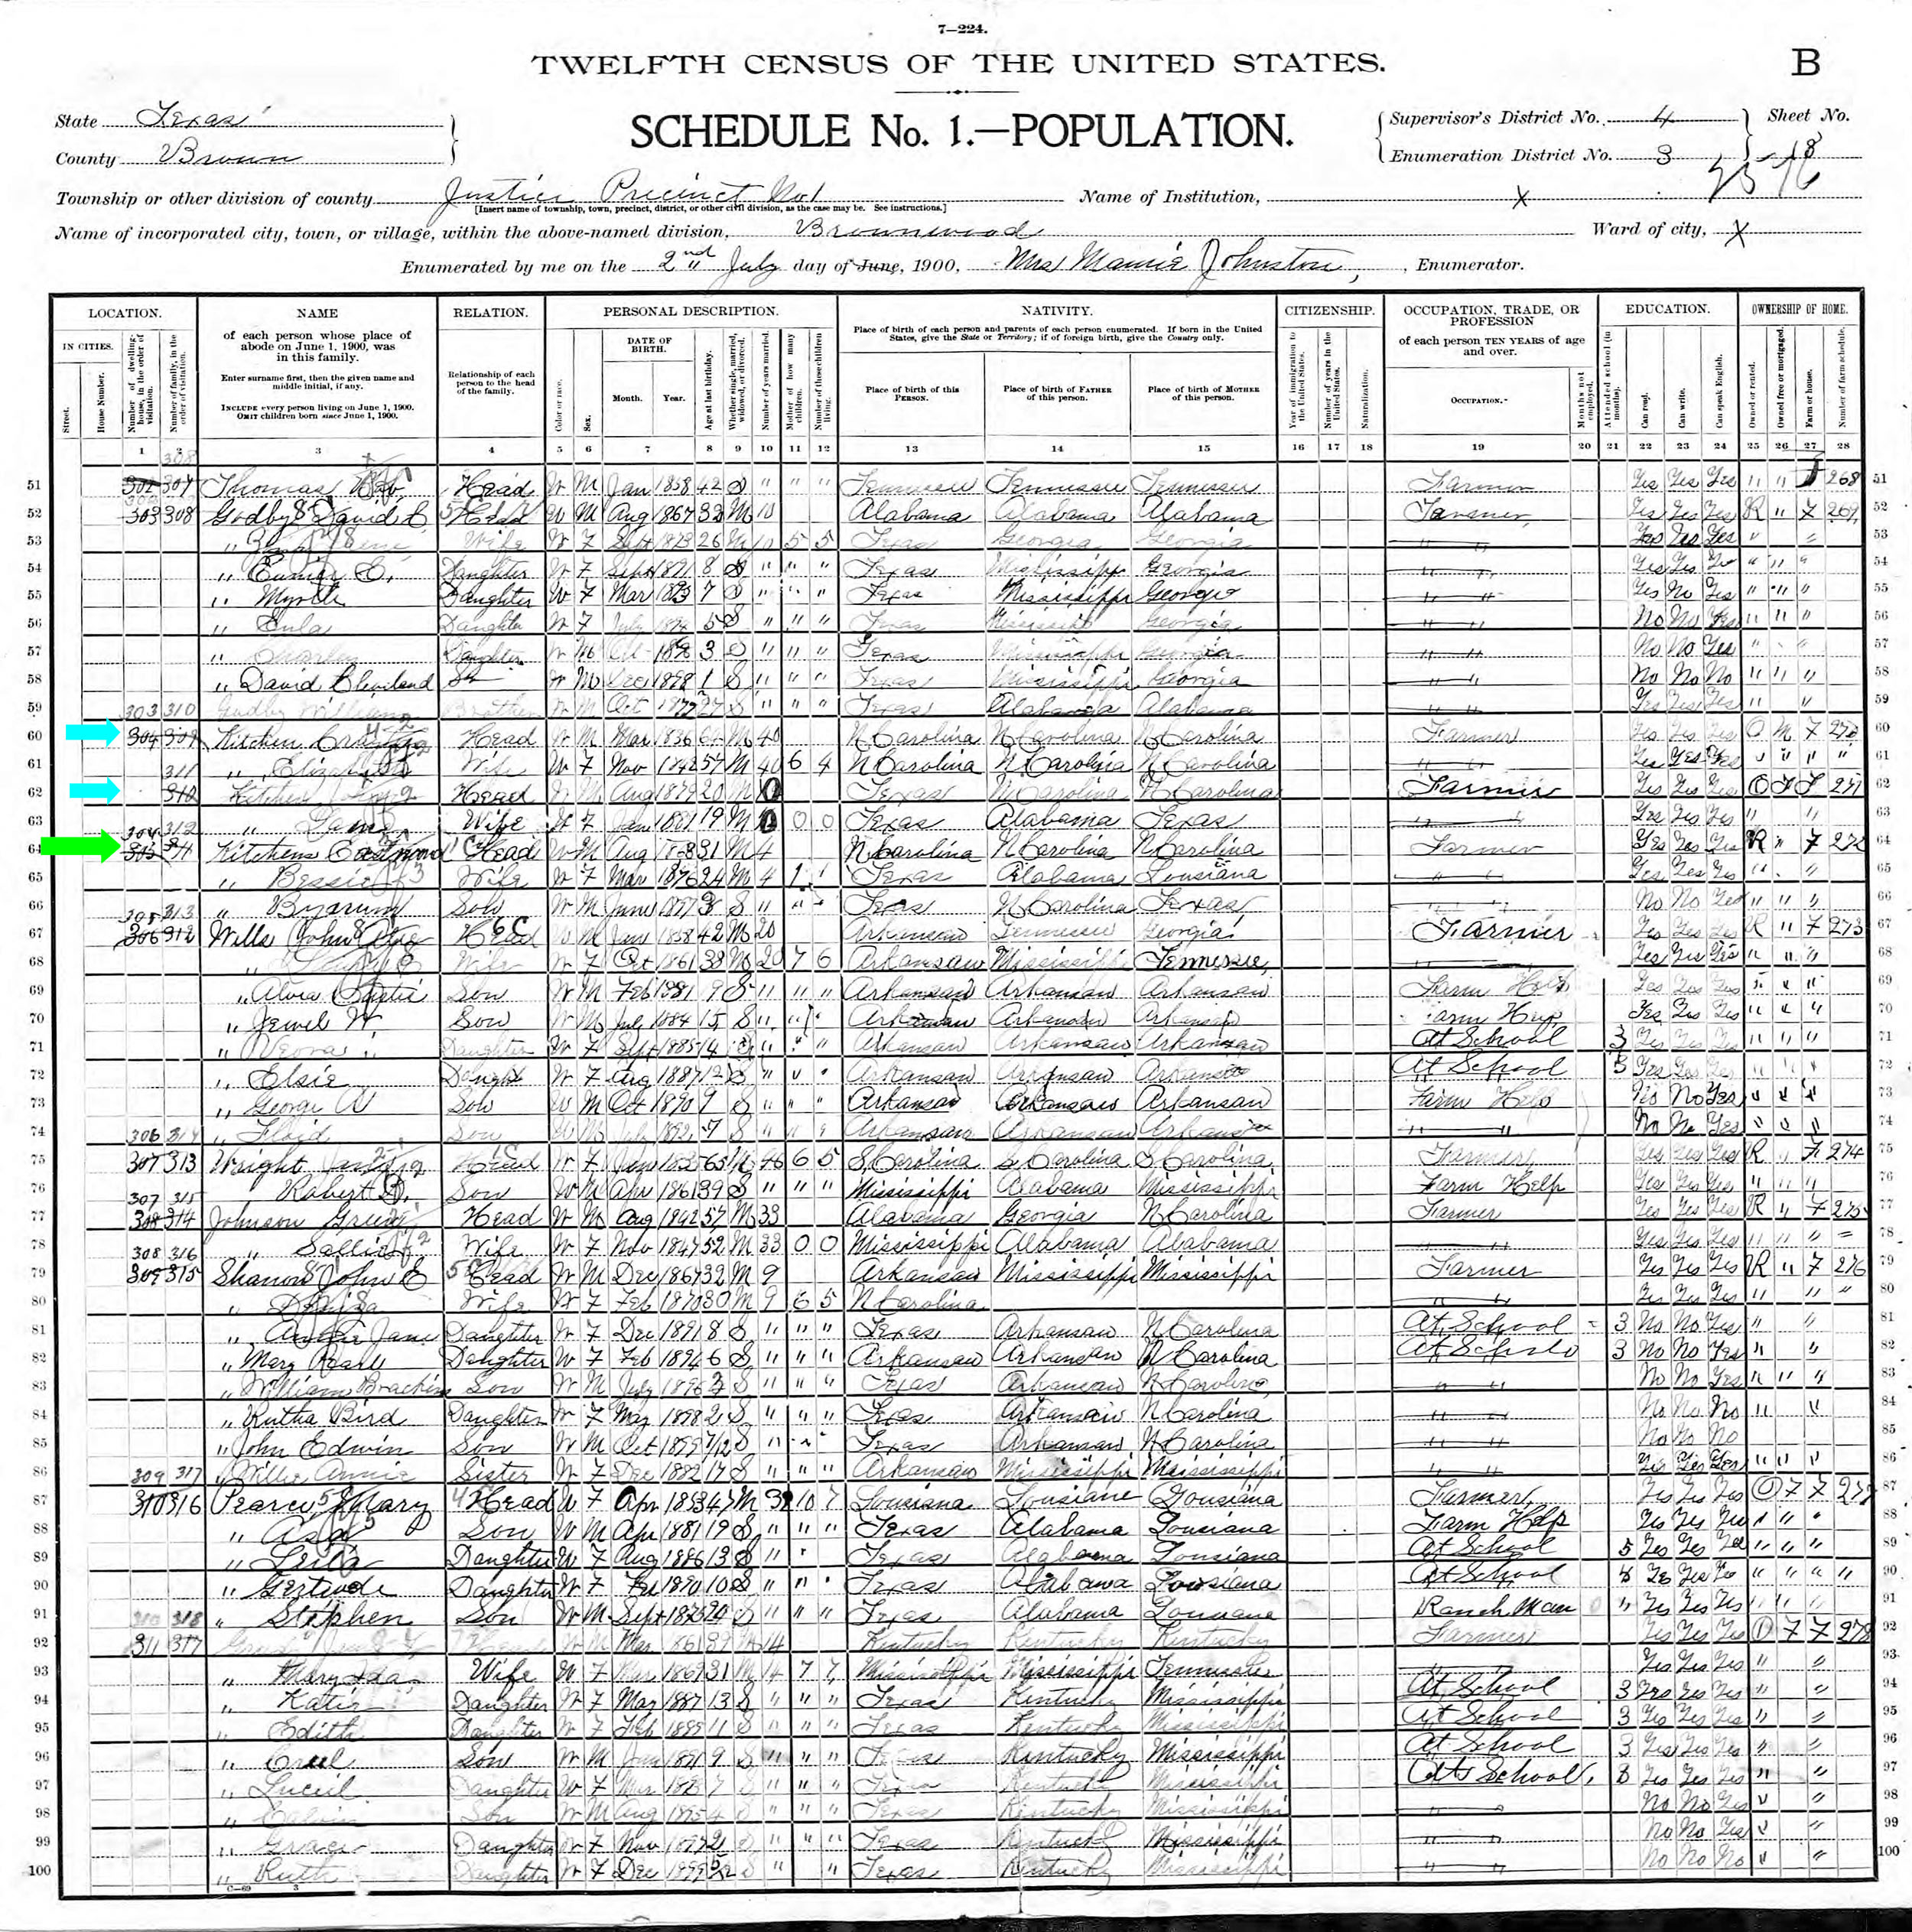 7—224.
TWELFTH CENSUS OF THE UNITED STATES.
B
State Texas
County Brown
SCHEDULE No. 1.—POPULATION.
Supervisor's District No. 4
Enumeration District No. 3
Sheet No.
18
Township or other division of county Justice Precinct No 1
[Insert name of township, town, precinct, district, or other civil division, as the case may be. See instructions.]
Name of Institution, X
Name of incorporated city, town, or village, within the above-named division, Brownwood
Ward of city, X
Enumerated by me on the 2nd July day of June, 1900, Mrs Mamie Johnston, Enumerator.
LOCATION. NAME RELATION. PERSONAL DESCRIPTION. NATIVITY. CITIZENSHIP. OCCUPATION, TRADE, OR PROFESSION EDUCATION. OWNERSHIP OF HOME.
IN CITIES.
Street.
House Number.
Number of dwelling-house, in the order of visitation.
Number of family, in the order of visitation.
of each person whose place of abode on June 1, 1900, was in this family.
Enter surname first, then the given name and middle initial, if any.
INCLUDE every person living on June 1, 1900.
OMIT children born since June 1, 1900.
Relationship of each person to the head of the family.
Color or race.
Sex.
DATE OF BIRTH.
Month. Year.
Age at last birthday.
Whether single, married, widowed, or divorced.
Number of years married.
Mother of how many children.
Number of these children living.
Place of birth of each person and parents of each person enumerated. If born in the United States, give the State or Territory; if of foreign birth, give the Country only.
Place of birth of this PERSON.
Place of birth of FATHER of this person.
Place of birth of MOTHER of this person.
Year of immigration to the United States.
Number of years in the United States.
Naturalization.
of each person TEN YEARS of age and over.
OCCUPATION.
Months not employed.
Attended school (in months).
Can read.
Can write.
Can speak English.
Owned or rented.
Owned free or mortgaged.
Farm or house.
Number of farm schedule.
1 2 3 4 5 6 7 8 9 10 11 12 13 14 15 16 17 18 19 20 21 22 23 24 25 26 27 28
51 302 307 Thomas Head W M Jan 1858 42 S " " " Tennessee Tennessee Tennessee Farmer Yes Yes Yes " " 268 51
52 303 308 Godby David C Head W M Aug 1867 32 M 10 Alabama Alabama Alabama Farmer Yes Yes Yes R " F 269 52
53 " Wife W F Sept 1873 26 M 10 5 5 Texas Georgia Georgia Yes Yes Yes " " 53
54 " Daughter W F Sept 1891 8 S " " " Texas Mississippi Georgia Yes Yes Yes " " " 54
55 " Myrtle Daughter W F Mar 1893 7 S " " " Texas Mississippi Georgia Yes No Yes " " " 55
56 " Eula Daughter W F July 5 S " " " Texas Mississippi Georgia No No Yes " " " 56
57 " Charley Daughter W M 3 S " " " Texas Mississippi Georgia No No Yes " 57
58 " David Cleveland W M Dec 1898 1 S " " " Texas Mississippi Georgia No No No " " " 58
59 303 310 Godby William Brother W M Oct 1872 27 S " " " Texas Alabama Alabama Yes Yes Yes " 59
60 304 309 Kitchen Head W M Mar 1836 64 M 40 N Carolina N Carolina N Carolina Farmer Yes Yes Yes O M F 270 60
61 311 " Elizabeth Wife W F Nov 1842 57 M 40 6 4 N Carolina N Carolina N Carolina Yes Yes Yes " " " " 61
62 310 Kitchen Head W M Aug 1879 20 M 0 Texas N Carolina N Carolina Farmer Yes Yes Yes O F F 271 62
63 304 312 " Wife W F Jan 1881 19 M 0 0 0 Texas Alabama Texas Yes Yes Yes " " 63
64 305 311 Kitchens Head W M Aug 1868 31 M 4 N Carolina N Carolina N Carolina Farmer Yes Yes Yes R " F 272 64
65 " Bessie Wife W F Mar 1876 24 M 4 1 1 Texas Alabama Louisiana Yes Yes Yes " " 65
66 305 313 " Bynum Son W M June 1897 3 S " " " Texas N Carolina Texas No No Yes " " " 66
67 306 312 Wills John Head W M Jan 1858 42 M 20 Arkansaw Tennessee Georgia Farmer Yes Yes Yes R " F 273 67
68 " Wife W F Oct 1861 38 M 20 7 6 Arkansaw Mississippi Tennessee Yes Yes Yes " " " 68
69 " Son W M Feb 9 S " " " Arkansaw Arkansaw Arkansaw Farm Help Yes Yes Yes " " " 69
70 " Jewel W. Son W M July 1884 15 S " " " Arkansaw Arkansaw Arkansaw Farm Help Yes Yes Yes " " " 70
71 " Daughter W F Sept 1885 14 S " " " Arkansaw Arkansaw Arkansaw At School 3 Yes Yes Yes " " " 71
72 " Elsie Daught W F Aug 1887 12 S " " " Arkansaw Arkansaw Arkansaw At School 3 Yes Yes Yes " " " 72
73 " George A Son W M Oct 1890 9 S " " " Arkansaw Arkansaw Arkansaw Farm Help No No Yes " " " 73
74 306 314 " Floid Son W M July 1892 7 S " " " Arkansaw Arkansaw Arkansaw No No Yes " " " 74
75 307 313 Wright Head W F Jan 1835 65 46 6 5 S, Carolina S Carolina S Carolina Farmer Yes Yes Yes R " F 274 75
76 307 315 " Robert D. Son W M Apr 1861 39 S " " " Mississippi Alabama Mississippi Farm Help Yes Yes Yes " " " 76
77 308 314 Johnson Green Head W M Aug 1842 57 M 33 Alabama Georgia N Carolina Farmer Yes Yes Yes R " F 275 77
78 308 316 " Sallie Wife W F Nov 1847 52 M 33 0 0 Mississippi Alabama Alabama Yes Yes Yes " " " " 78
79 309 315 John E Head W M Dec 1867 32 M 9 Arkansaw Mississippi Mississippi Farmer Yes Yes Yes R " F 276 79
80 " Wife W F Feb 1870 30 M 9 6 5 N Carolina Yes Yes Yes " " " 80
81 " Annie Jane Daughter W F Dec 1891 8 S " " " Texas Arkansaw N Carolina At School 3 No No Yes " " 81
82 " Mary Pearl Daughter W F Feb 1894 6 S " " " Arkansaw Arkansaw N Carolina At School 3 No No Yes " " 82
83 " William Son W M July 1896 3 S " " " Texas Arkansaw N Carolina No No Yes " " " 83
84 " Rutha Bird Daughter W F May 1898 2 S " " " Texas Arkansaw N Carolina No No No " " 84
85 " John Edwin Son W M Oct 1899 7/12 S " " " Texas Arkansaw N Carolina No No No 85
86 309 317 " Annie Sister W F Dec 1882 17 S " " " Arkansaw Mississippi Mississippi Yes Yes Yes " " " 86
87 310 316 Pearce Mary Head W F Apr 1853 47 M 32 10 7 Louisiana Louisiana Louisiana Farmer Yes Yes Yes O F F 277 87
88 " Asa Son W M Apr 1881 19 S " " " Texas Alabama Louisiana Farm Help Yes Yes Yes " " " 88
89 " Leila Daughter W F Aug 1886 13 S " " Texas Alabama Louisiana At School 5 Yes Yes Yes " " " 89
90 " Gertrude Daughter W F 1890 10 S " " " Texas Alabama Louisiana At School Yes Yes Yes " " " " 90
91 310 318 " Stephen Son W M Sept 1875 24 S " " " Texas Alabama Louisiana Ranch Man Yes Yes Yes " " " 91
92 311 317 W M Mar 14 Kentucky Kentucky Kentucky Farmer Yes Yes Yes O F F 278 92
93 " Mary Ida Wife W F Mar 1869 31 M 14 7 7 Mississippi Mississippi Tennessee Yes Yes Yes " " 93
94 " Katie Daughter W F Mar 1887 13 S " " " Texas Kentucky Mississippi At School 3 Yes Yes Yes " " 94
95 " Edith Daughter W F Feb 1889 11 S " " " Texas Kentucky Mississippi At School 3 Yes Yes Yes " " 95
96 " Creel Son W M Jan 1891 9 S " " " Texas Kentucky Mississippi At School 3 Yes Yes Yes " " 96
97 " Luceil Daughter W F Mar 7 S " " " Texas Kentucky Mississippi At School Yes Yes Yes " " 97
98 " Calvin Son W M Aug 1895 4 S " " " Texas Kentucky Mississippi No No Yes " " 98
99 " Grace Daughter W F Nov 1897 2 S " " " Texas Kentucky Mississippi No No Yes " " 99
100 " Ruth Daughter W F Dec 1899 5/12 S " " Texas Kentucky Mississippi No No No " " 100